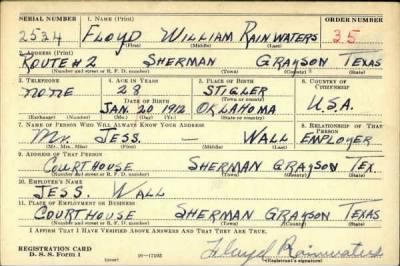 SERIAL NUMBER 1. NAME (Print) ORDER NUMBER
2534 FLOYD WILLIAM RAINWATERS 35
(First) (Middle) (Last)
2. ADDRESS (Print)
ROUTE #2 SHERMAN GRAYSON TEXAS
(Number and street or R. F. D. number) (Town) (County) (State)
3. TELEPHONE 4. AGE IN YEARS 5. PLACE OF BIRTH 6. COUNTRY OF CITIZENSHIP
none 28 STIGLER
(Town or county)
DATE OF BIRTH
JAN. 20 1912 OKLAHOMA U.S.A.
(Exchange) (Number) (Mo.) (Day) (Yr.) (State or country)
7. NAME OF PERSON WHO WILL ALWAYS KNOW YOUR ADDRESS 8. RELATIONSHIP OF THAT PERSON
Mr. JESS. — WALL EMPLOYER
(Mr., Mrs., Miss) (First) (Middle) (Last)
9. ADDRESS OF THAT PERSON
COURTHOUSE SHERMAN GRAYSON TEX.
(Number and street or R. F. D. number) (Town) (County) (State)
10. EMPLOYER'S NAME
JESS. WALL
11. PLACE OF EMPLOYMENT OR BUSINESS
COURTHOUSE SHERMAN GRAYSON TEXAS
(Number and street or R. F. D. number) (Town) (County) (State)
I AFFIRM THAT I HAVE VERIFIED ABOVE ANSWERS AND THAT THEY ARE TRUE.
REGISTRATION CARD
D. S. S. Form 1 Floyd Rainwaters
(Registrant's signature)